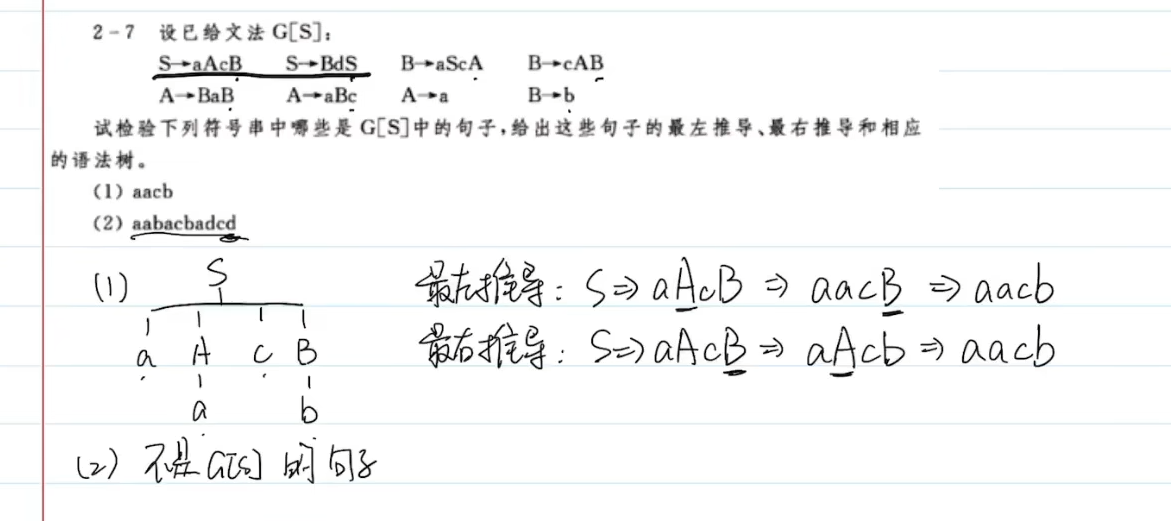 2-7 设已给文法 G[S]:
S→aAcB S→BdS B→aScA B→cAB
A→BaB A→aBc A→a B→b
试检验下列符号串中哪些是 G[S]中的句子,给出这些句子的最左推导、最右推导和相应
的语法树。
(1) aacb
(2) aabacbadcd
(1) S 最左推导: S⇒aAcB⇒aacB⇒aacb
a A c B 最右推导: S⇒aAcB⇒aAcb⇒aacb
a b
(2) 不是G[S]的句子